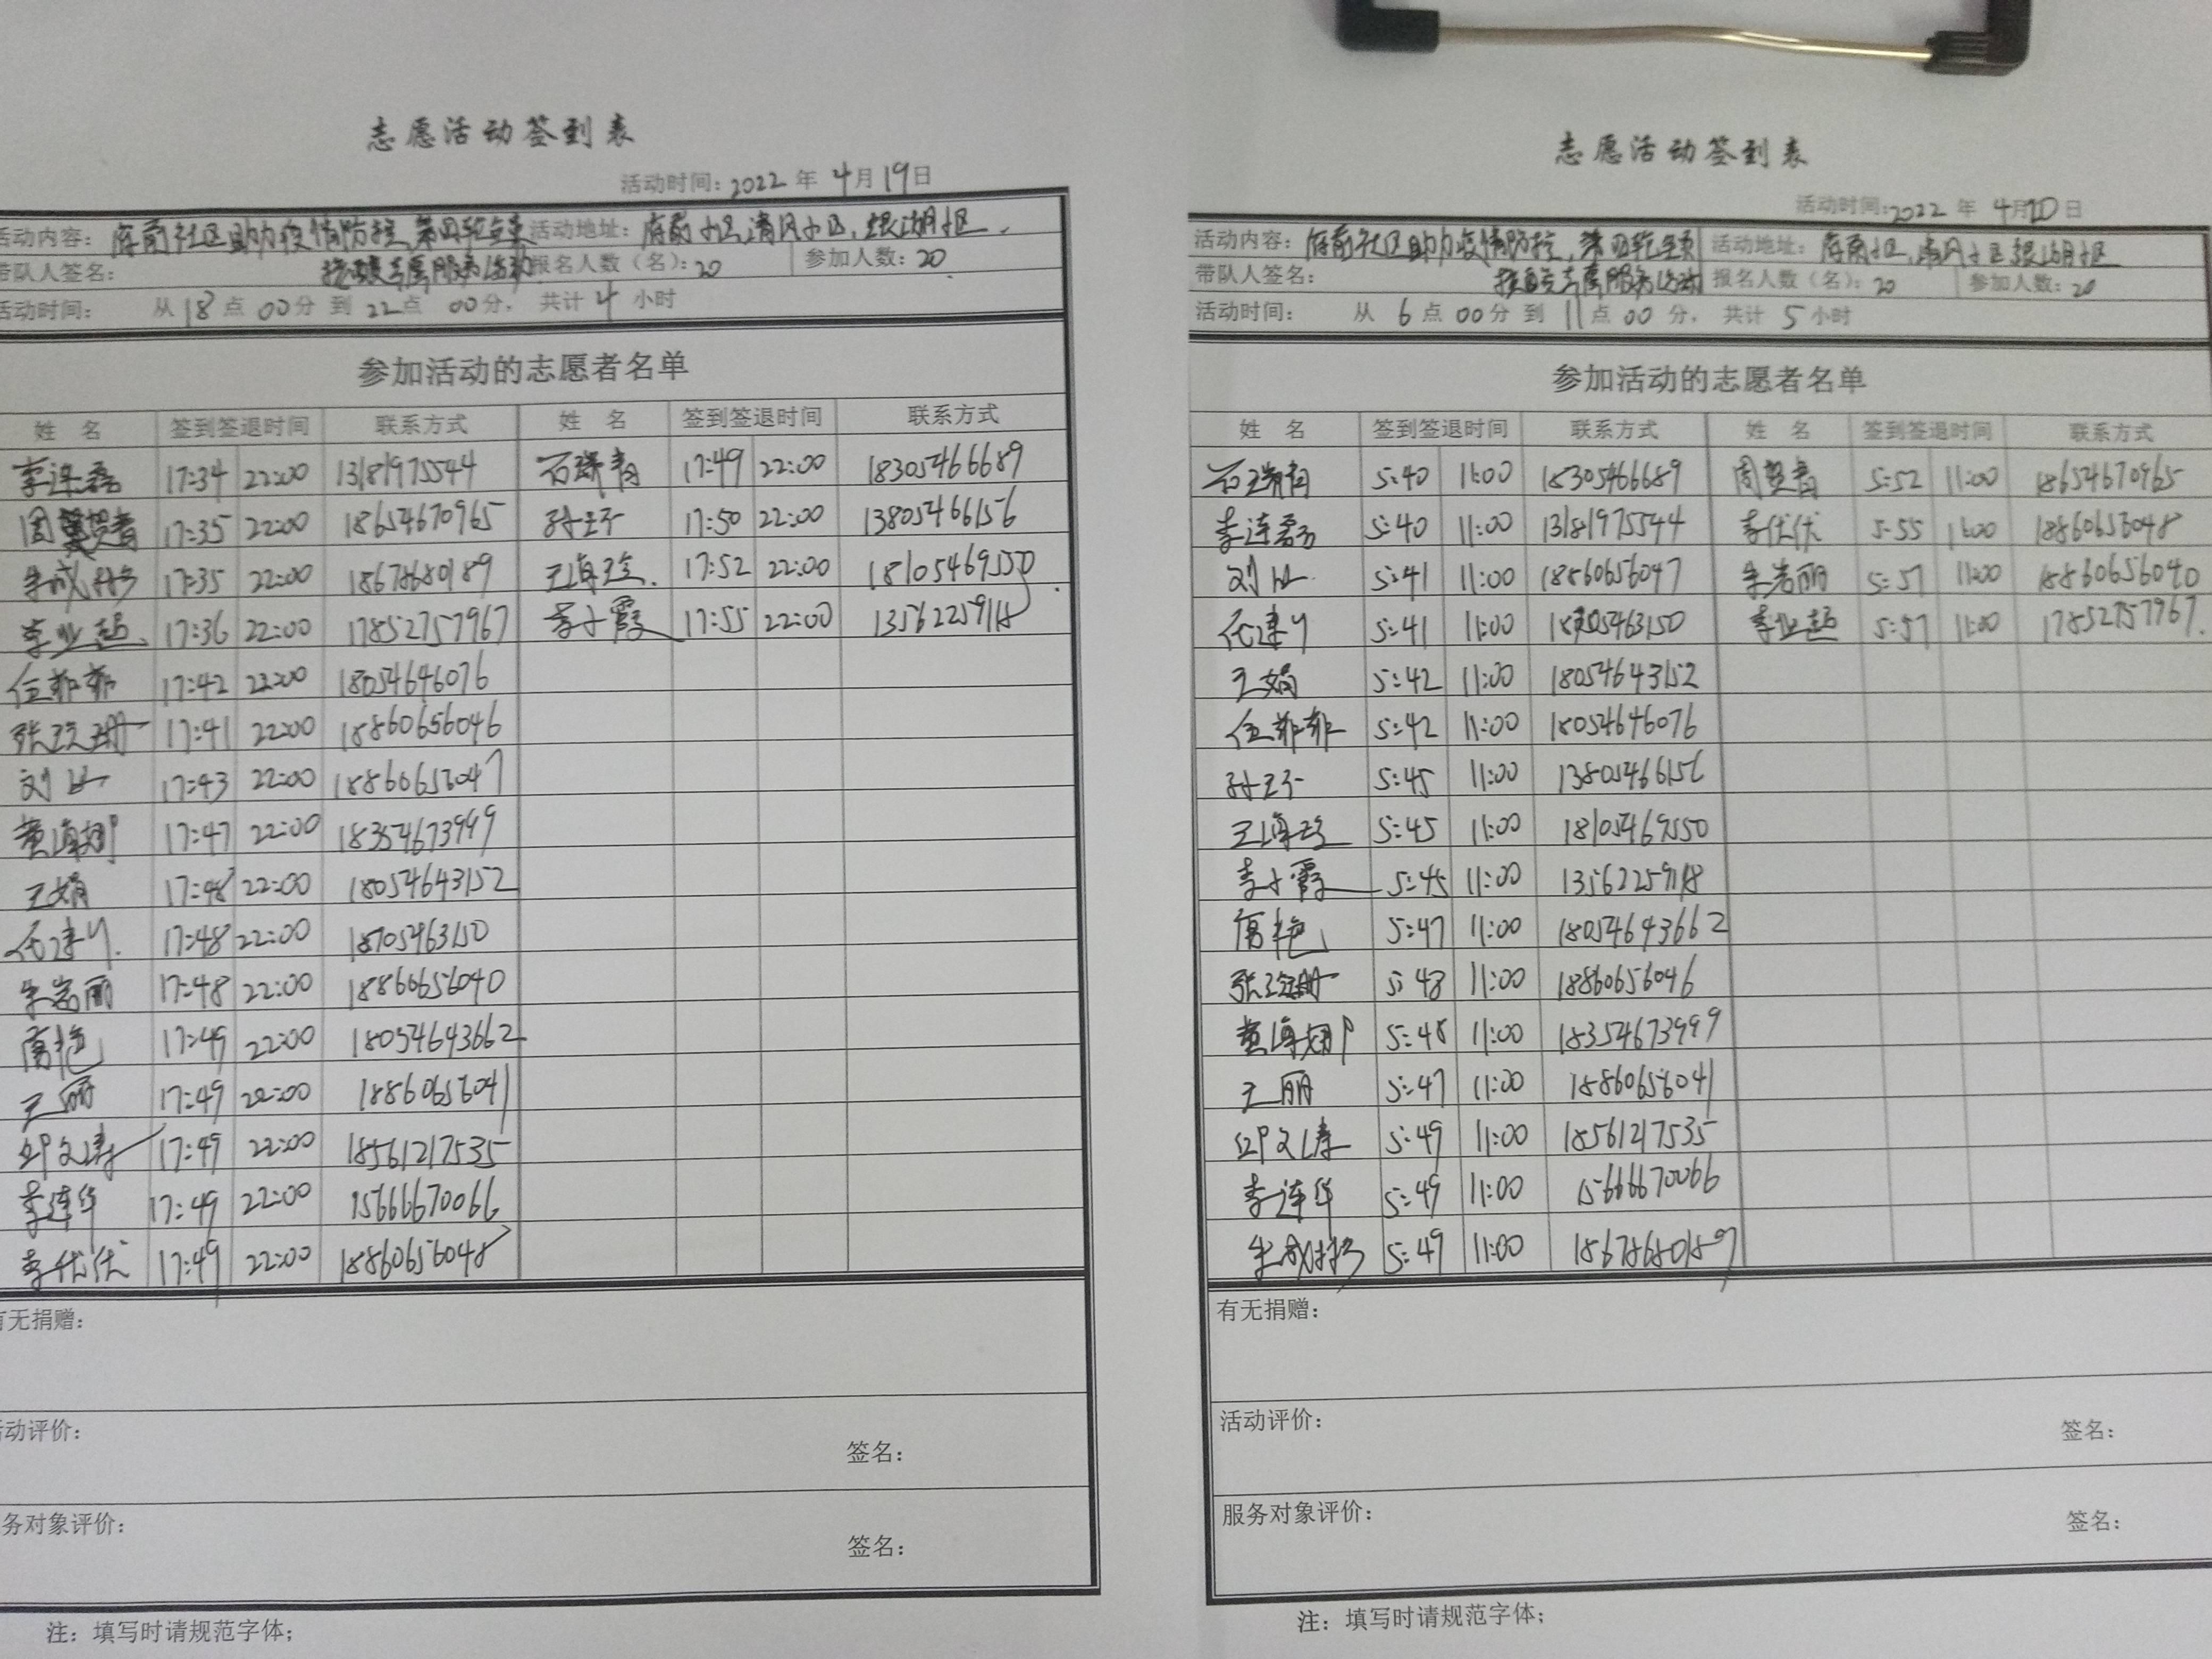 志愿活动签到表
活动时间：2022 年 4月19日
活动内容：府前社区助力疫情防控，第四轮全员 活动地址：府前小区，清风小区，银湖小区.
带队人签名： 核酸志愿服务活动 报名人数（名）：20 参加人数：20
活动时间： 从18点00分到22点00分，共计4小时
参加活动的志愿者名单
姓 名 签到签退时间 联系方式 姓 名 签到签退时间 联系方式
李连磊 17:34 22:00 13181975544 石瑞青 17:49 22:00 18305466689
周贺青 17:35 22:00 18654670965 孙玉子 17:50 22:00 13805466156
17:35 22:00 18678680189 王海玲 17:52 22:00 18105469550
李业超 17:36 22:00 17852757967 李小霞 17:55 22:00 13562259118
任菲菲 17:42 22:00 18054646076
17:41 22:00 18860656046
刘 17:43 22:00 18860656047
黄海翔 17:47 22:00 18354673999
王娟 17:48 22:00 18054643152
17:48 22:00 18705463150
朱岩丽 17:48 22:00 18860656040
17:49 22:00 18054643662
王丽 17:49 22:00 18860656041
邱文涛 17:49 22:00 18561217535
李连华 17:49 22:00 15666670066
李优优 17:49 22:00 18860656048
有无捐赠：
活动评价：
签名：
服务对象评价：
签名：
注：填写时请规范字体；
志愿活动签到表
活动时间：2022 年 4月20日
活动内容：府前社区助力疫情防控，第四轮全员 活动地址：府前小区，清风小区 银湖小区
带队人签名： 核酸志愿服务活动 报名人数（名）：20 参加人数：20
活动时间： 从 6点00分到11点00分，共计 5小时
参加活动的志愿者名单
姓 名 签到签退时间 联系方式 姓 名 签到签退时间 联系方式
石瑞青 5:40 11:00 18305466689 周贺青 5:52 11:00 18654670965
李连磊 5:40 11:00 13181975544 李优优 5:55 11:00 18860656048
刘 5:41 11:00 18860656047 朱岩丽 5:57 11:00 18860656040
5:41 11:00 18705463150 李业超 5:57 11:00 17852757967
王娟 5:42 11:00 18054643152
任菲菲 5:42 11:00 18054646076
孙玉子 5:45 11:00 13805466156
王海玲 5:45 11:00 18105469550
李小霞 5:45 11:00 13562259118
5:47 11:00 18054643662
5:48 11:00 18860656046
黄海翔 5:48 11:00 18354673999
王丽 5:47 11:00 18860656041
邱文涛 5:49 11:00 18561217535
李连华 5:49 11:00 15666670066
5:49 11:00 18678680189
有无捐赠：
活动评价：
签名：
服务对象评价：
签名：
注：填写时请规范字体；